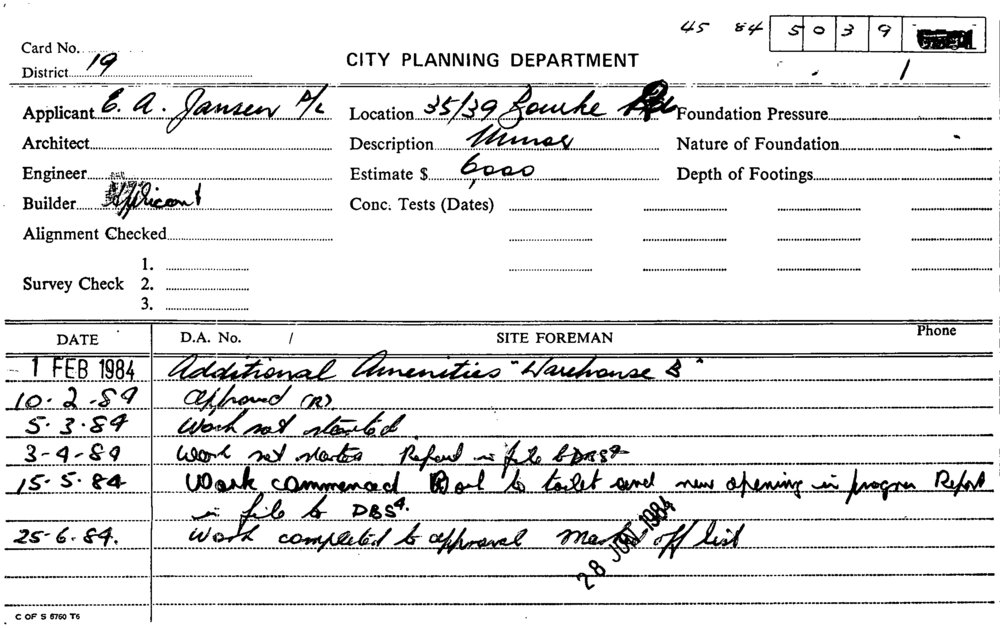 45 84 5039
Card No.
District 19
CITY PLANNING DEPARTMENT
Applicant E. A. Jansen P/L Location 35/39 Bourke Rd Foundation Pressure
Architect Description Minor Nature of Foundation
Engineer Estimate $ 6,000 Depth of Footings
Builder Applicant Conc. Tests (Dates)
Alignment Checked
1.
Survey Check 2.
3.
DATE D.A. No. / SITE FOREMAN Phone
1 FEB 1984 Additional Amenities "Warehouse B"
10.2.84 approved (R)
5.3.84 Work not started
3-4-84 Work not started Report in file to DBS4
15.5.84 Work commenced to toilet and new opening in progress Report
in file to DBS4.
25-6.84. Work completed to approval off list
28 1984
C OF S 5760 T6